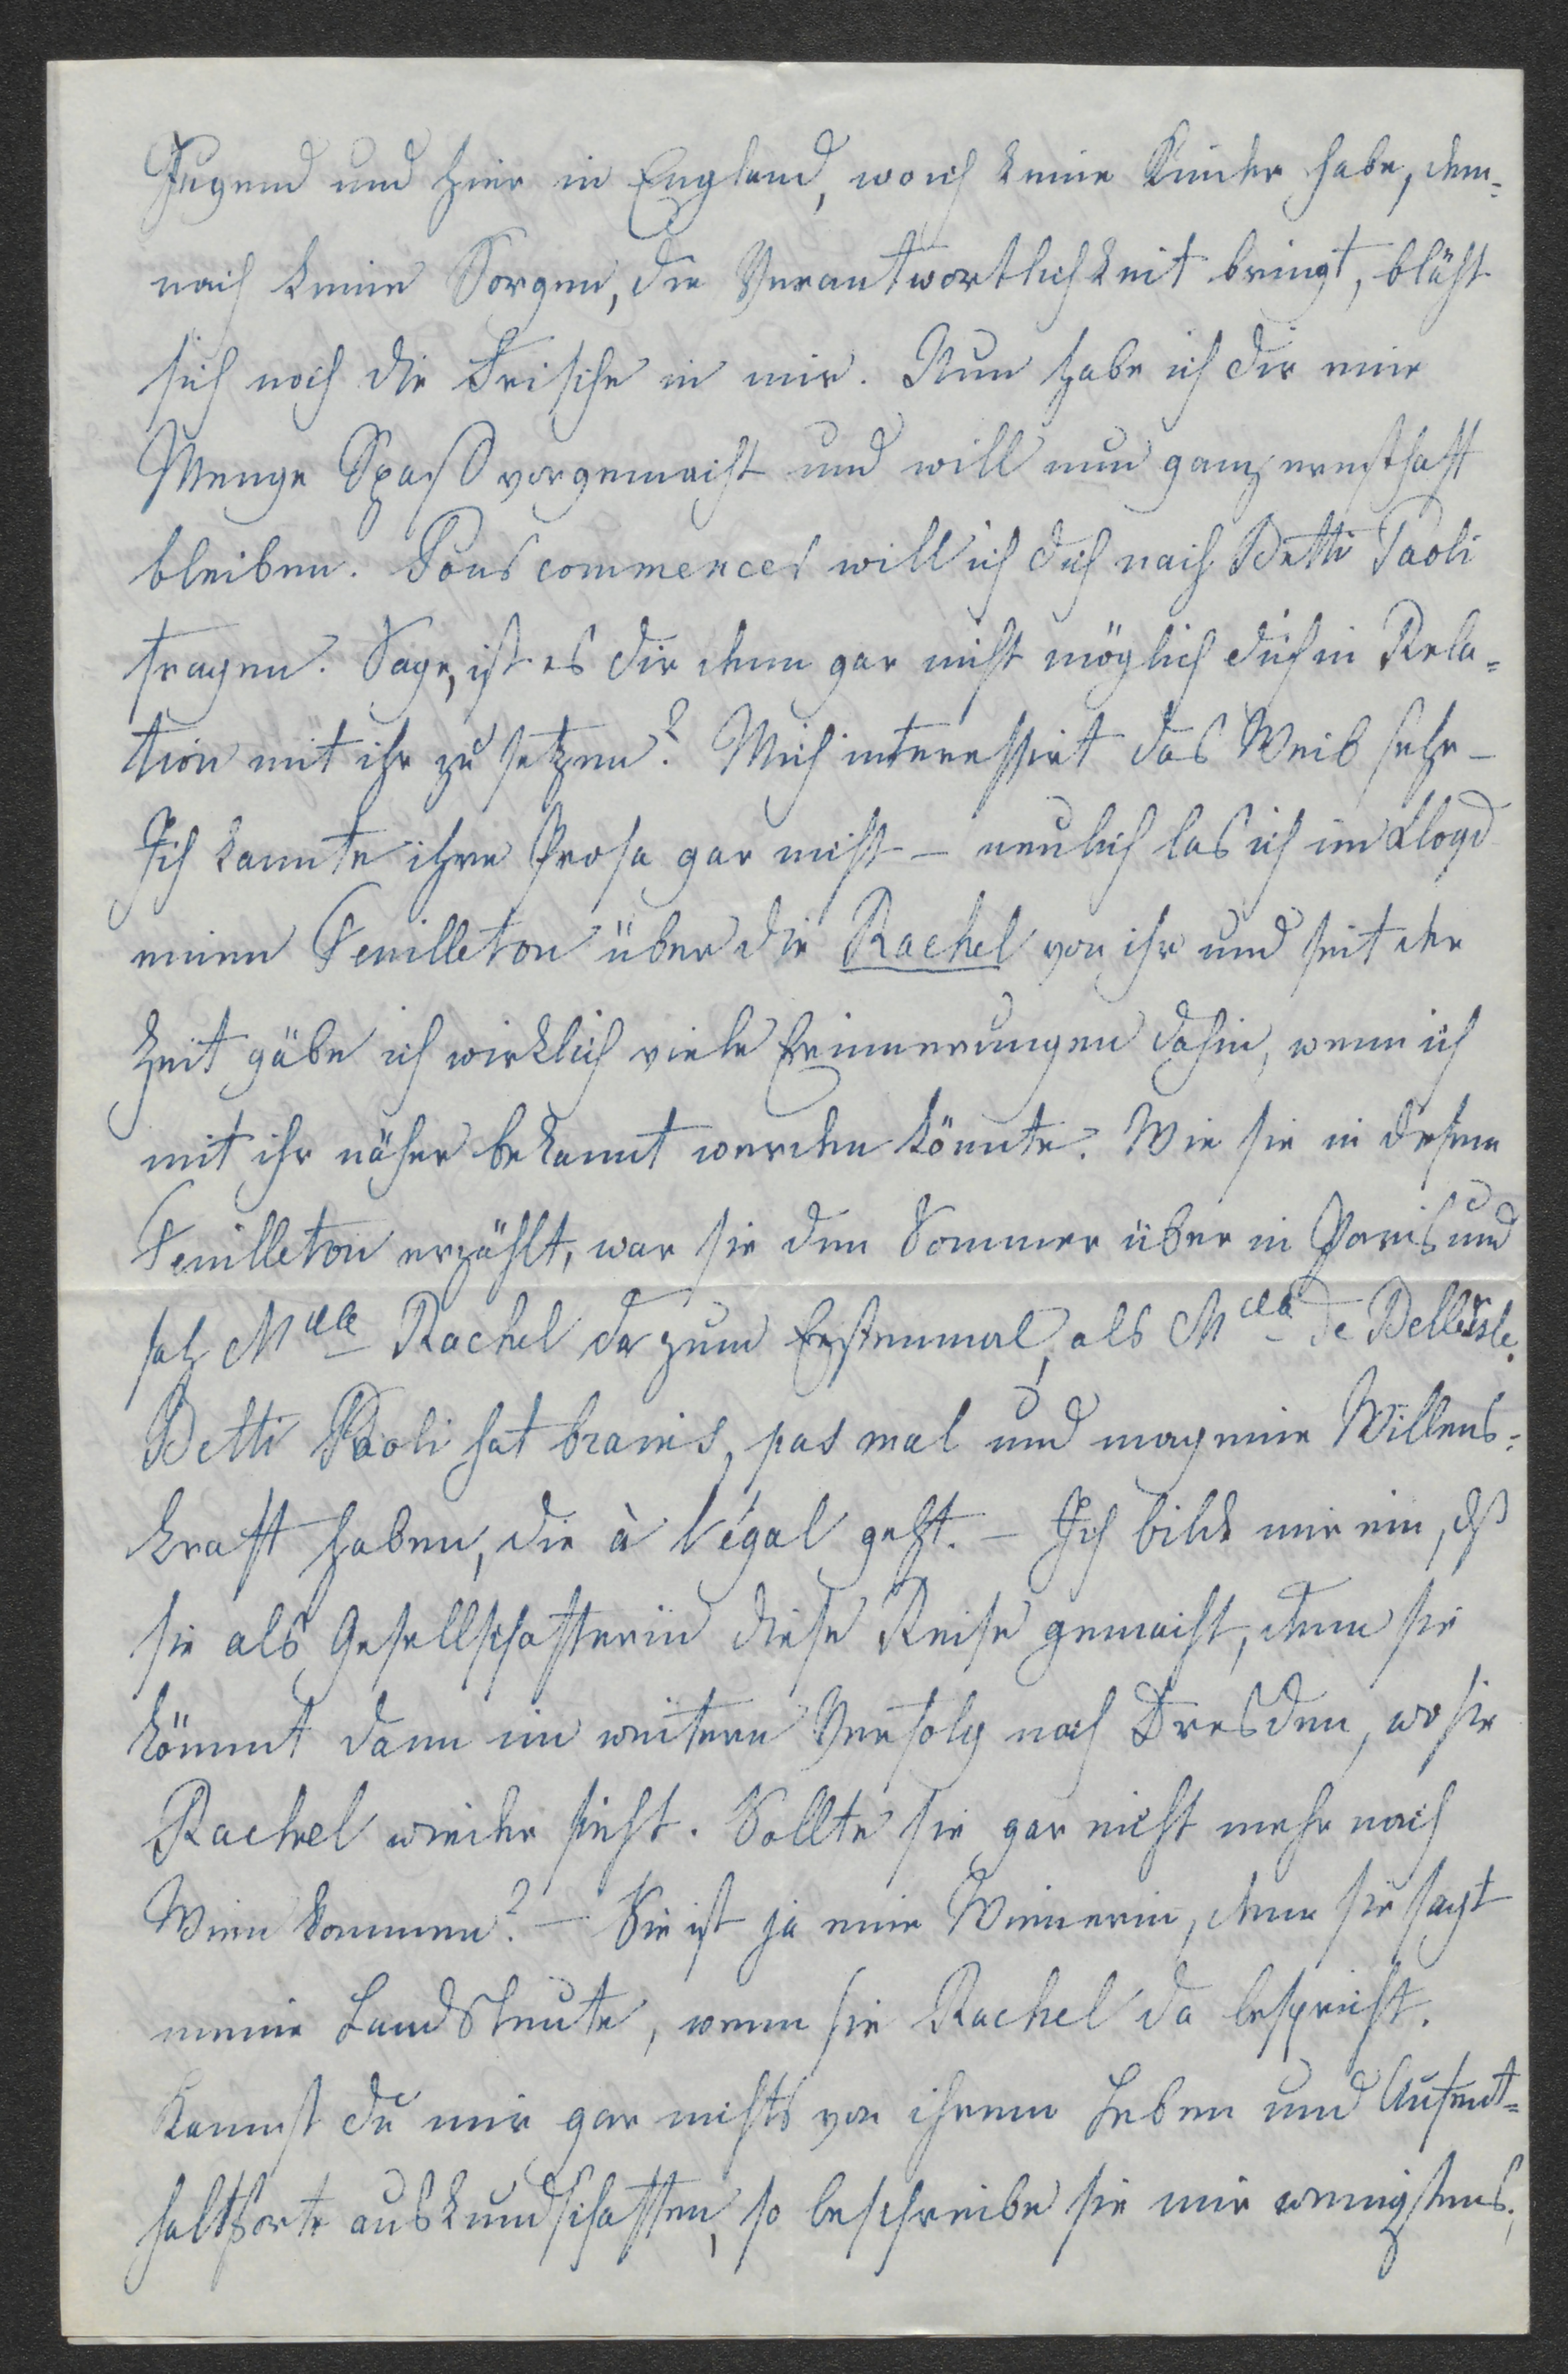 Jugend und hier in England, wo ich keine Kinder habe, dem=
nach keine Sorgen, die Verantwortlichkeit bringt, bläht
sich noch die Frische in mir. Nun habe ich dir eine
Menge Spaß vorgemacht und will nun ganz ernsthaft
bleiben. Pous commencer will ich dich nach Betti Paoli
fragen. Sage, ist es dir denn gar nicht möglich dich in Rela=
tion mit ihr zu setzen? Mich interessirt das Weib sehr –
Ich kannte ihre Prosa gar nicht – neulich las ich im Lloyd
einen Feuilleton über die Rachel von ihr und seit der
Zeit gäbe ich wirklich viele Erinnerungen dahin, wenn ich
mit ihr näher bekannt werden könnte. Wie sie in diesem
Feuilleton erzählt, war sie den Sommer über in Paris und
sah Mlle Rachel da zum Erstenmal, als Mlle de Belle Isle.
Betti Paoli hat brains, pas mal und mag eine Willens=
kraft haben, die à l'égal geht. – Ich bilde mir ein, dß
sie als Gesellschafterin diese Reise gemacht, denn sie
kömmt dann im weitern Verfolg nach Dresden, wo sie
Rachel wieder sieht. Sollte sie gar nicht mehr nach
Wien kommen? – Sie ist ja eine Wienerin, denn sie sagt
meine Landsleute, wenn sie Rachel da bespricht.
Kannst du mir gar nichts von ihrem Leben und Aufent=
haltsorte auskundschaften, so beschreibe sie mir wenigstens,